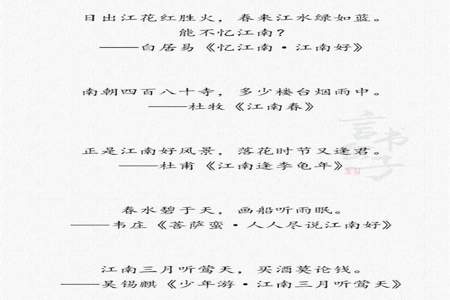 日出江花红胜火，春来江水绿如蓝。
能不忆江南？
——白居易《忆江南·江南好》
南朝四百八十寺，多少楼台烟雨中。
——杜牧《江南春》
正是江南好风景，落花时节又逢君。
——杜甫《江南逢李龟年》
春水碧于天，画船听雨眠。
——韦庄《菩萨蛮·人人尽说江南好》
江南三月听莺天，买酒莫论钱。
——吴锡麒《少年游·江南三月听莺天》